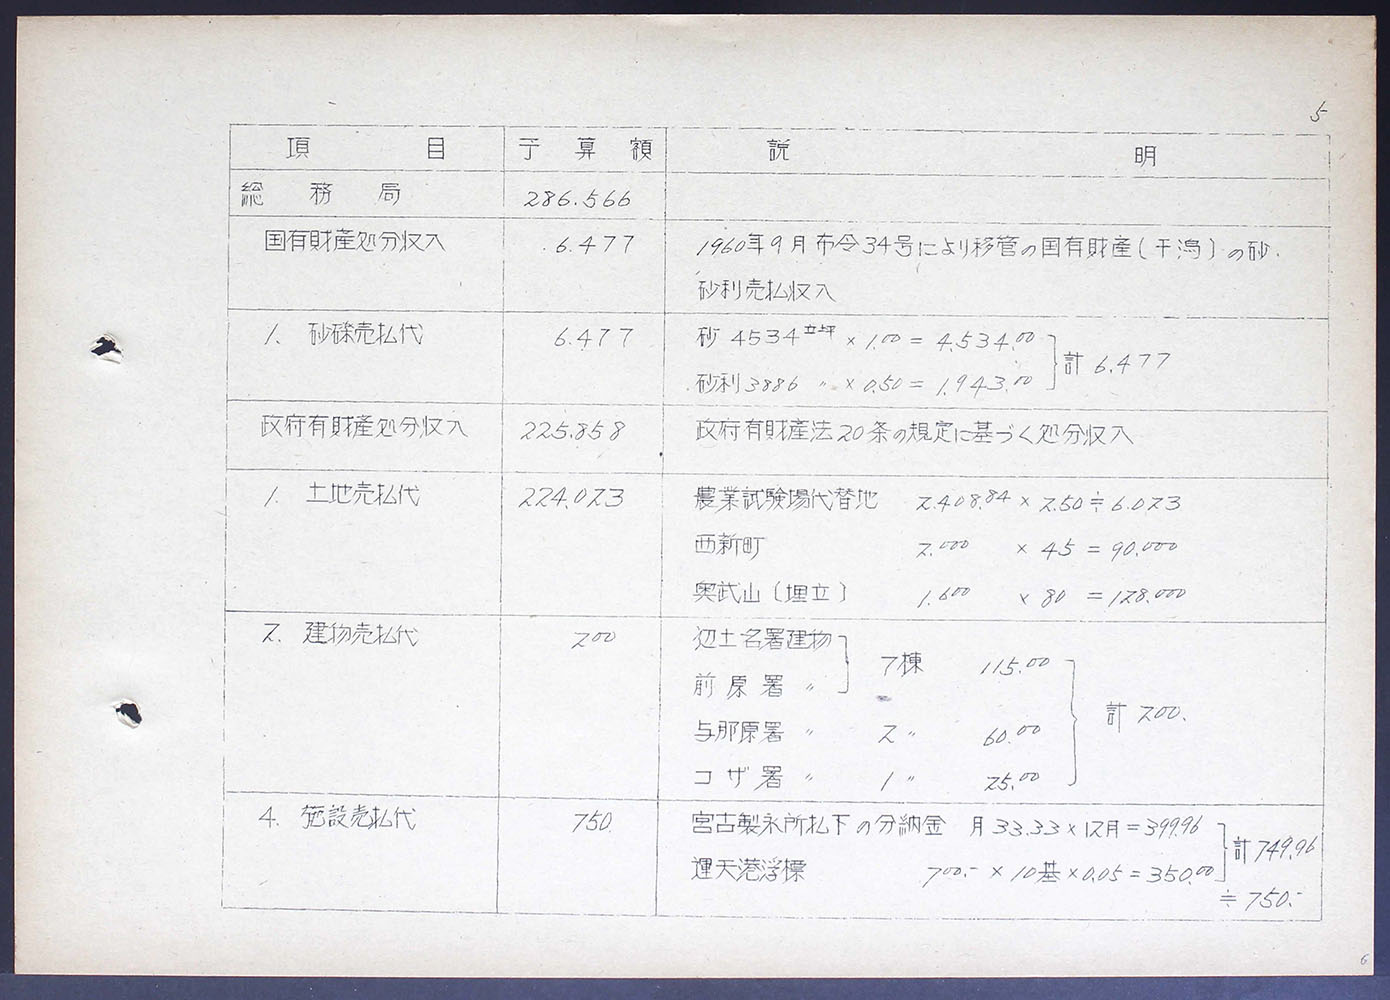 5
項目 予算額 説明
総務局 286.566
国有財産処分収入 6.477 1960年9月布令34号により移管の国有財産(干潟)の砂.
砂利売払収入
1. 砂礫売払代 6.477 砂 4534立坪 × 1.00 = 4.534.00
計 6.477
砂利 3886 〃 × 0.50 = 1.943.00
政府有財産処分収入 225.858 政府有財産法20条の規定に基づく処分収入
1. 土地売払代 224.023 農業試験場代替地 2.408.84 × 2.50 ≒ 6.023
西新町 2.000 × 45 = 90.000
奥武山(埋立) 1.600 × 80 = 128.000
2. 建物売払代 200 辺土名署建物
7棟 115.00
前原署 〃
計 200.
与那原署 〃 2 〃 60.00
コザ署 〃 1 〃 25.00
4. 施設売払代 750. 宮古製氷所払下の分納金 月33.33×12月=399.96
計 749.96
運天港浮標 700.- × 10基 × 0.05 = 350.00
≒ 750.-
6